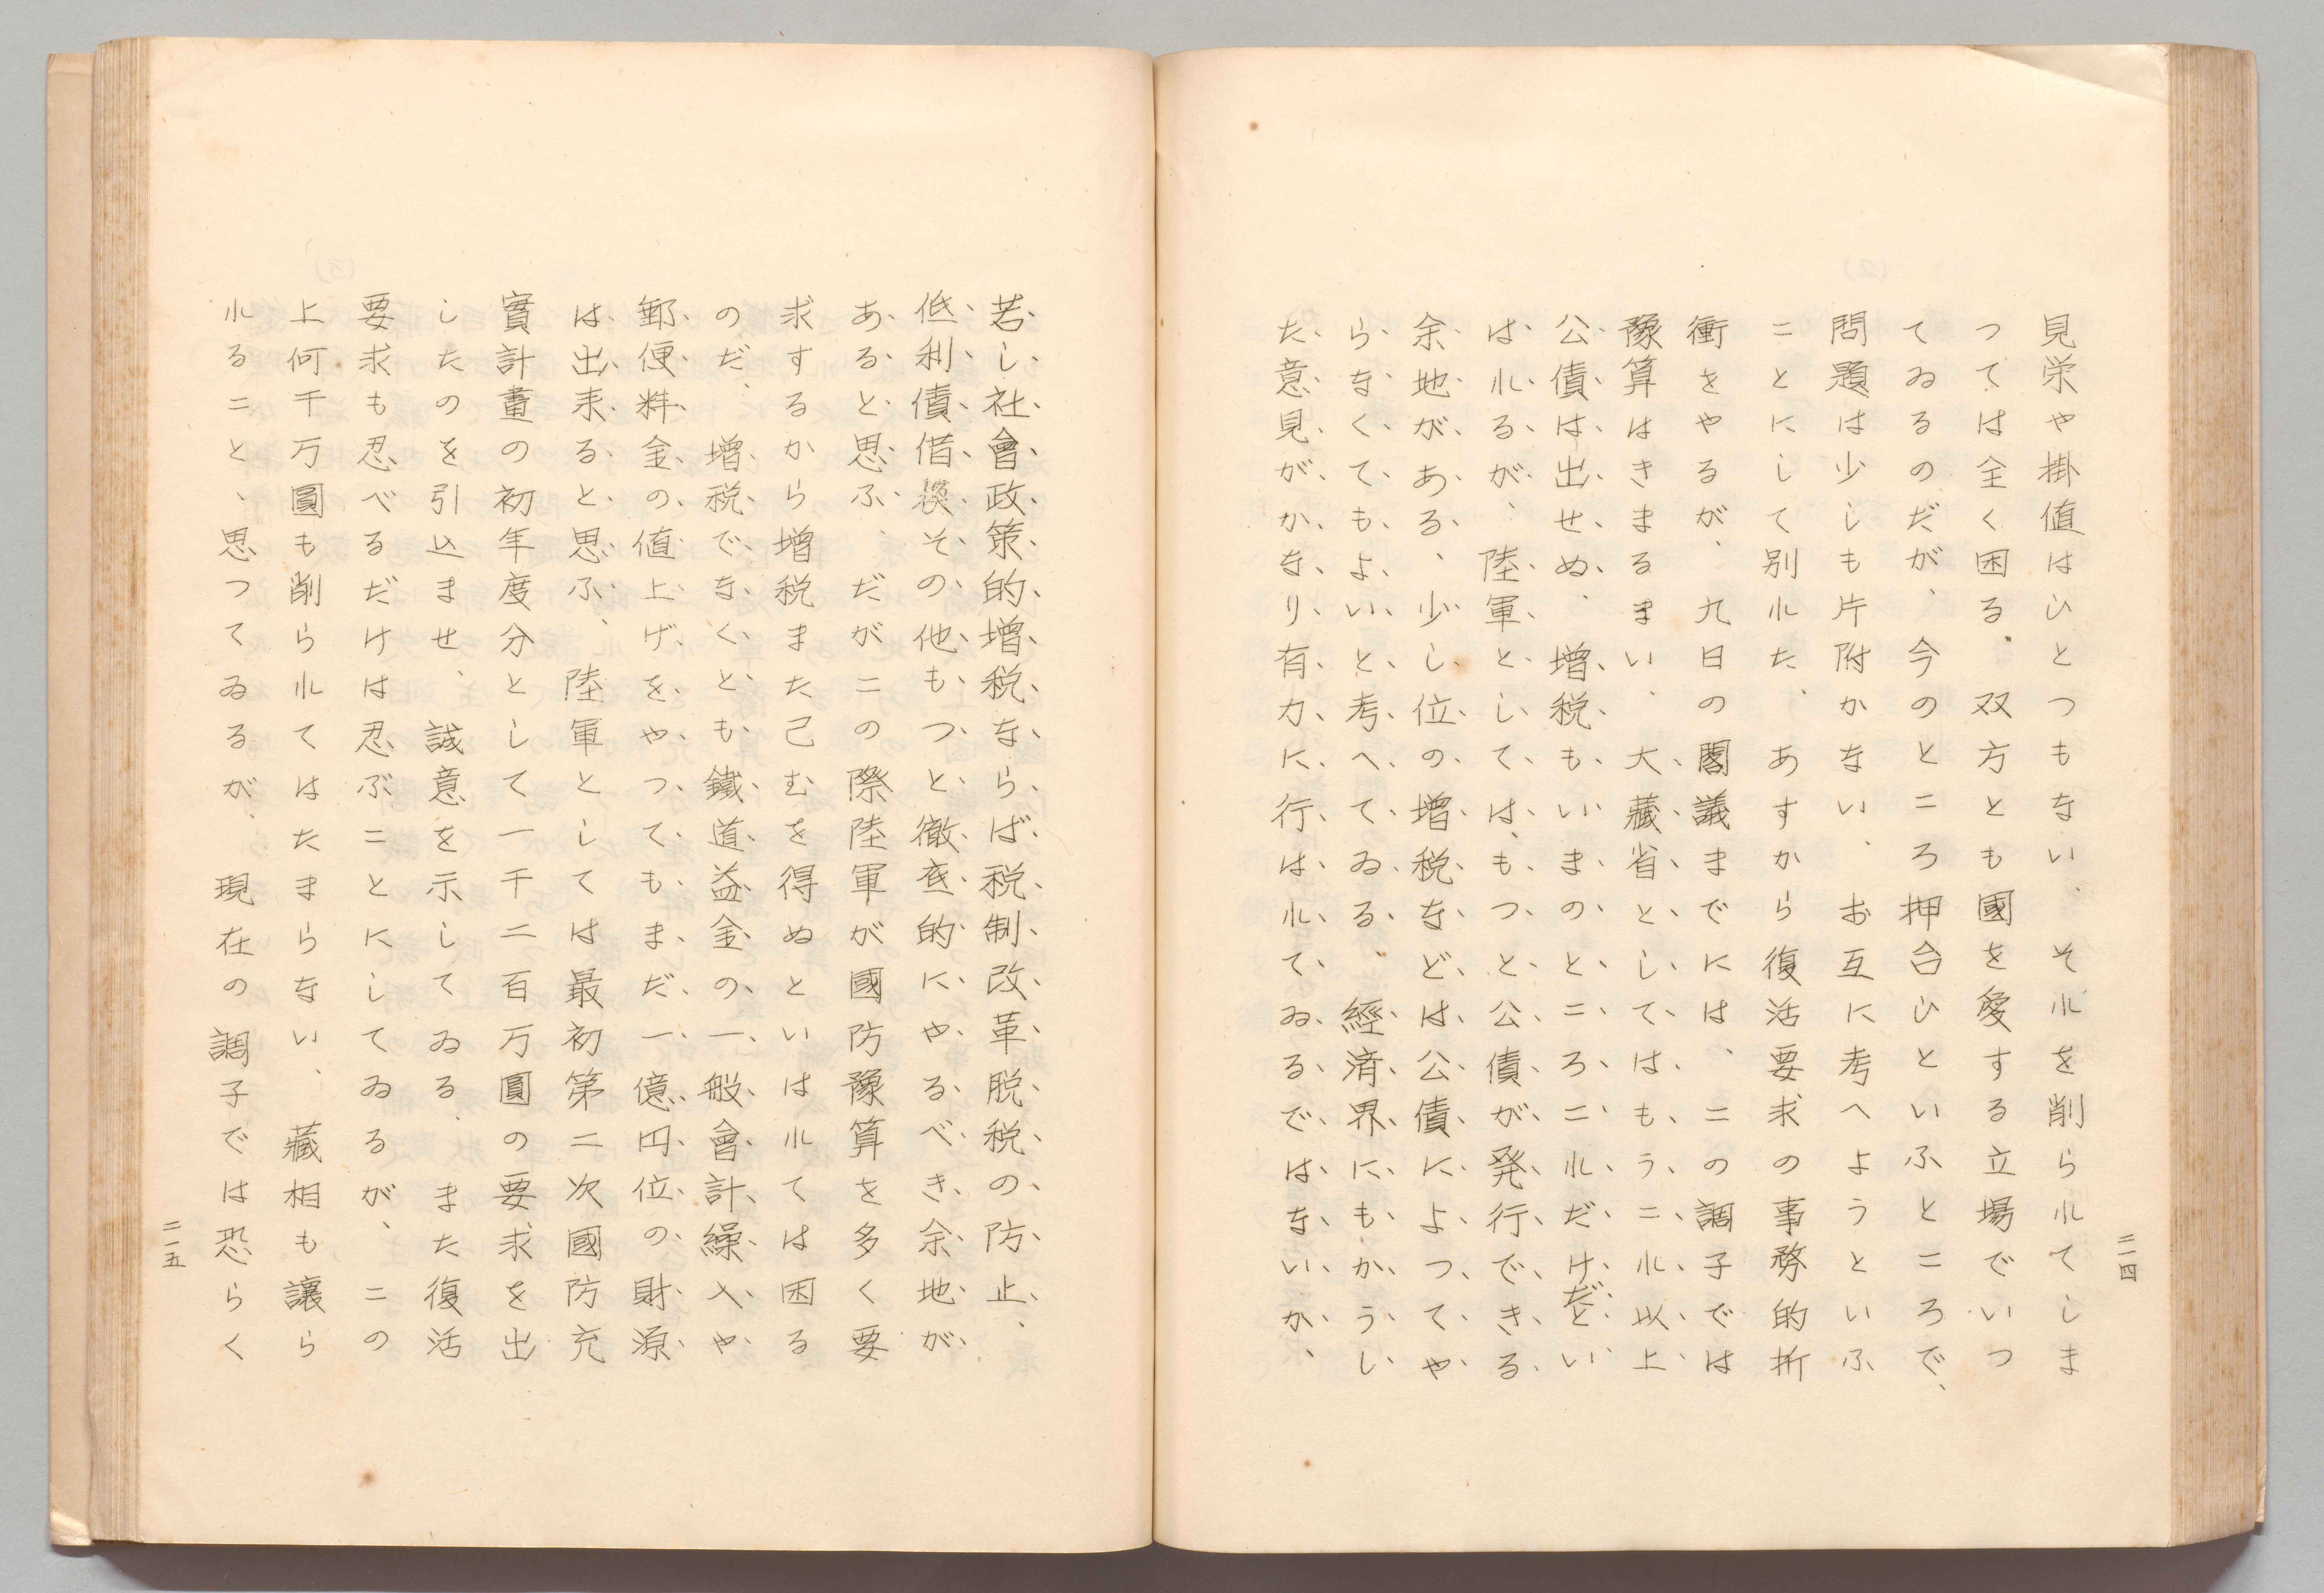 二一四
見栄や掛値はひとつもない、それを削られてしま
つては全く困る。双方とも國を愛する立場でいつ
てゐるのだが、今のところ押合ひといふところで、
問題は少しも片附かない、お互に考へようといふ
ことにして別れた、あすから復活要求の事務的折
衝をやるが、九日の閣議までには、この調子では
豫算はきまるまい、大藏省としてはもうこれ以上
公債は出せぬ、増税もいまのところこれだけだとい
はれるが、陸軍としては、もつと公債が発行できる
余地がある、少し位の増税などは公債によつてや
らなくてもよいと考へてゐる、経済界にもかうし
た意見がかなり有力に行はれてゐるではないか、
若し社會政策的増税ならば税制改革脱税の防止、
低利債借換その他もつと徹底的にやるべき余地が
あると思ふ、だがこの際陸軍が國防豫算を多く要
求するから増税また已むを得ぬといはれては困る
のだ、増税でなくとも鐵道益金の一般會計繰入や
郵便料金の値上げをやつてもまだ一億円位の財源
は出来ると思ふ、陸軍としては最初第二次國防充
實計畫の初年度分として一千二百万圓の要求を出
したのを引込ませ、誠意を示してゐる、また復活
要求も忍べるだけは忍ぶことにしてゐるが、この
上何千万圓も削られてはたまらない、藏相も讓ら
れること、思つてゐるが、現在の調子では恐らく
二一五